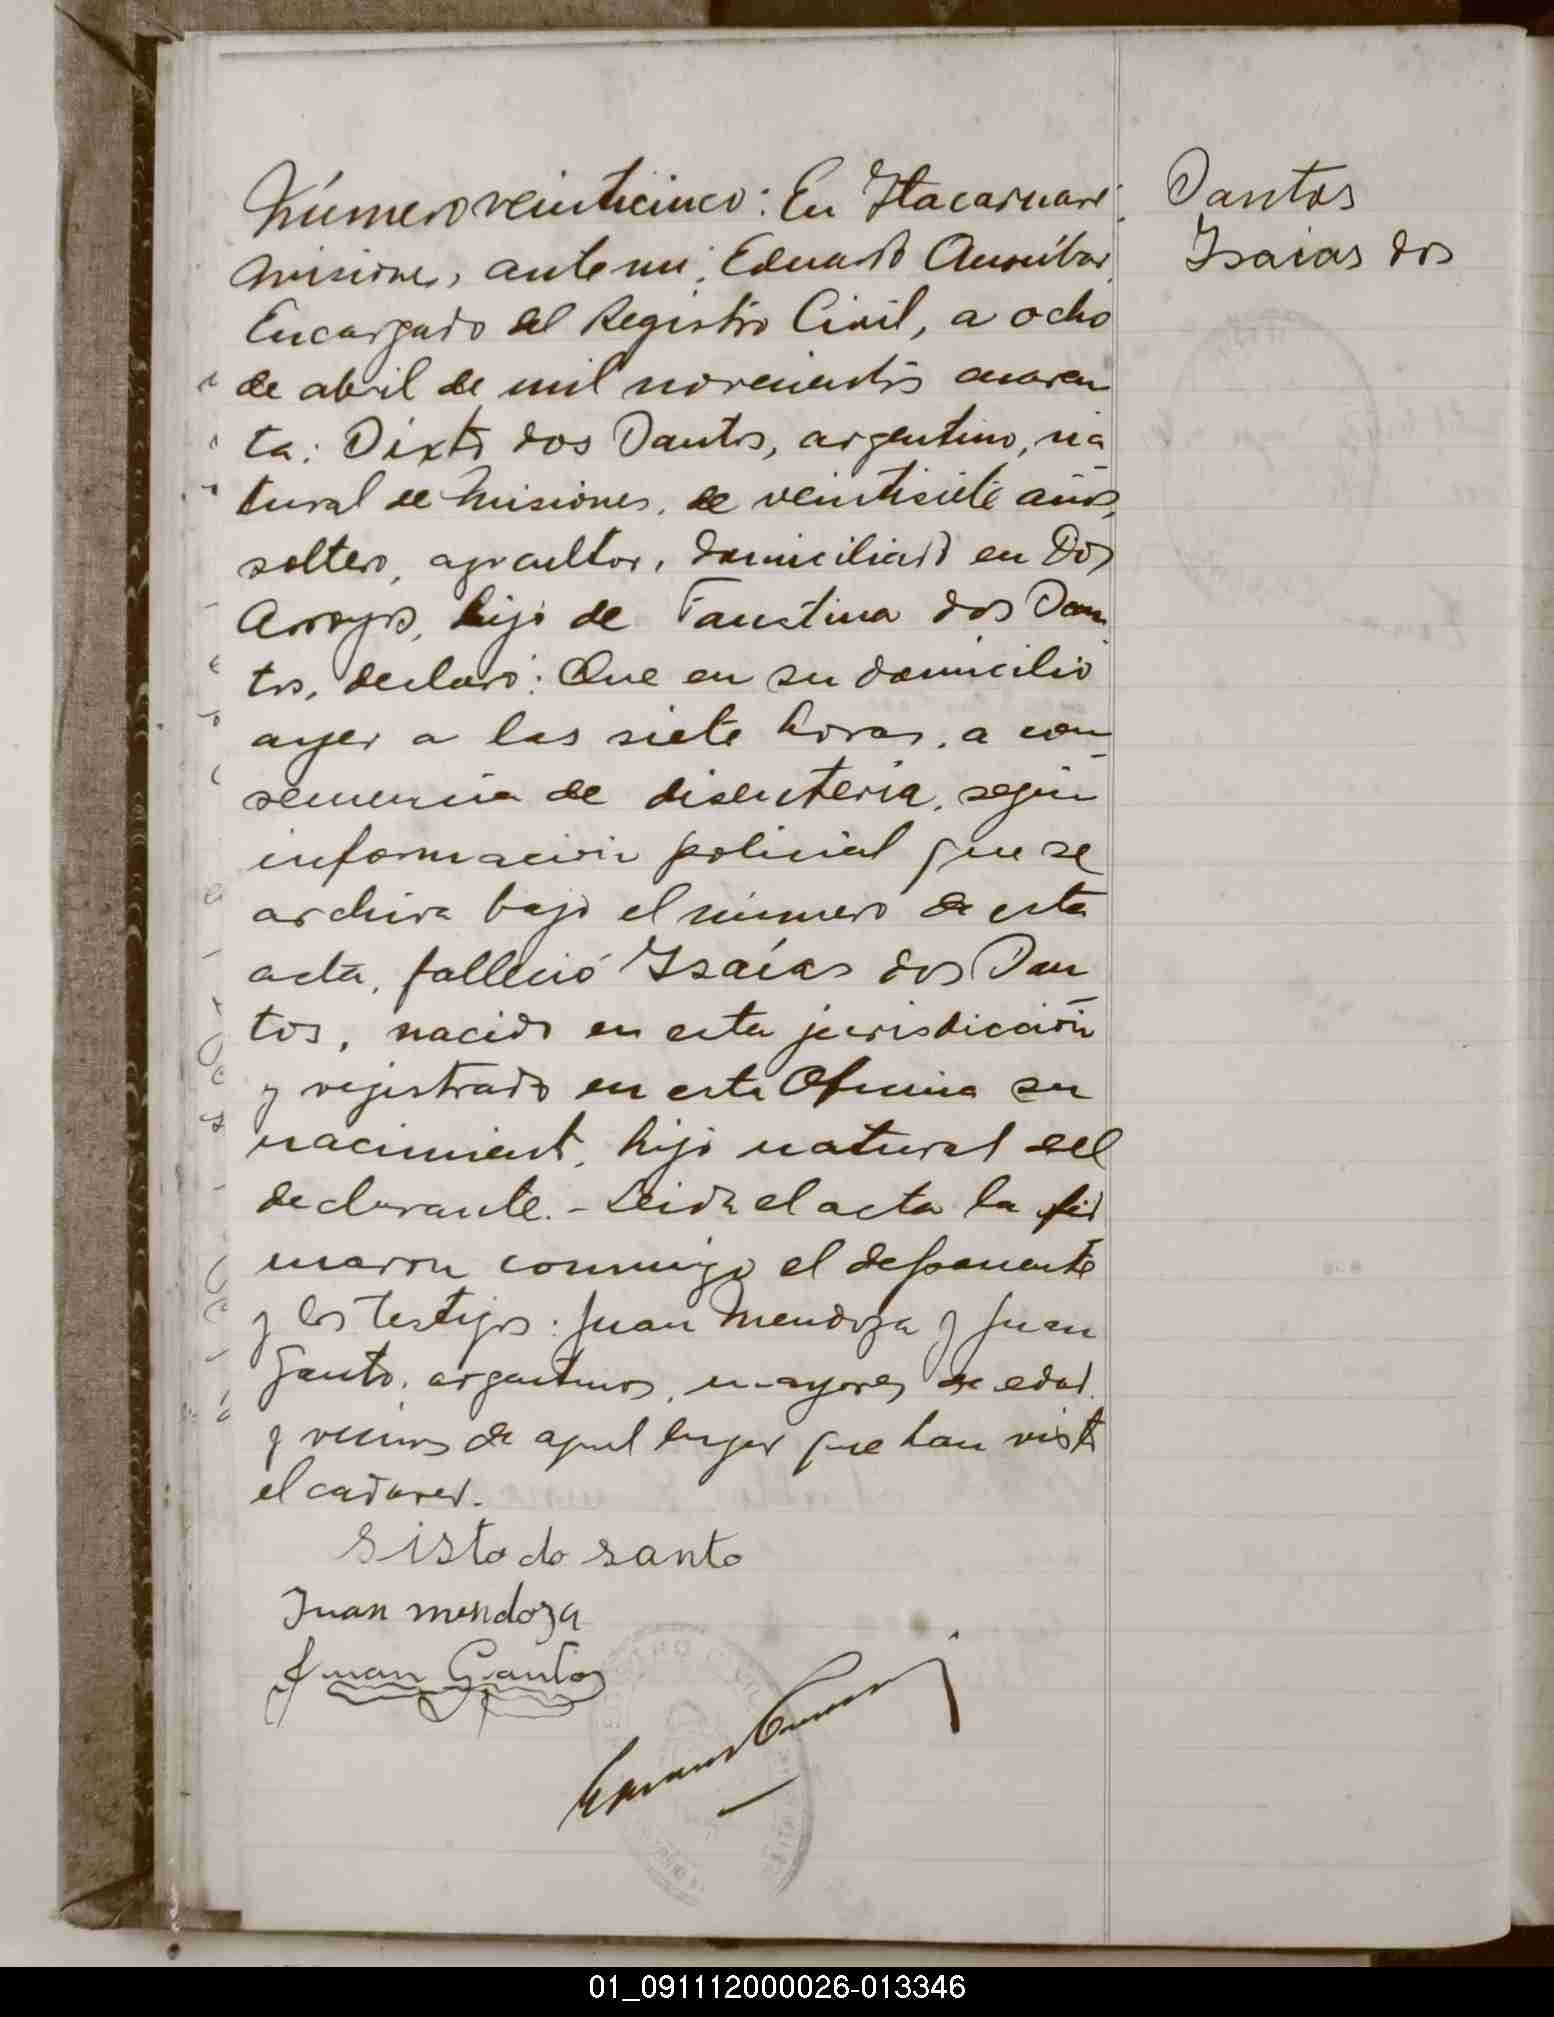 Número veinticinco: En Itacaruaré
Misiones, ante mi, Eduardo
Encargado del Registro Civil, a ocho
de abril de mil novecientos cuaren
ta: Sixto dos Santos, argentino, na
tural de Misiones, de veintisiete años,
soltero, agricultor, domiciliado en Dos
Arroyos, hijo de Faustina dos San
tos, declaró: Que en su domicilio
ayer a las siete horas, a con
secuencia de disenteria, según
información policial que se
archiva bajo el número de esta
acta, falleció Isaías dos San
tos, nacido en esta jurisdicción
y registrado en esta Oficina su
nacimiento, hijo natural del
declarante.- Leida el acta la fir
maron conmigo el deponente
y los testigos: Juan Mendoza y Juan
Ganto, argentinos, mayores de edad
y vecinos de aquel lugar que han visto
el cadaver.
Sisto do santo
Juan mendoza
Juan Gantos
Santos
Isaias dos
01_091112000026-013346